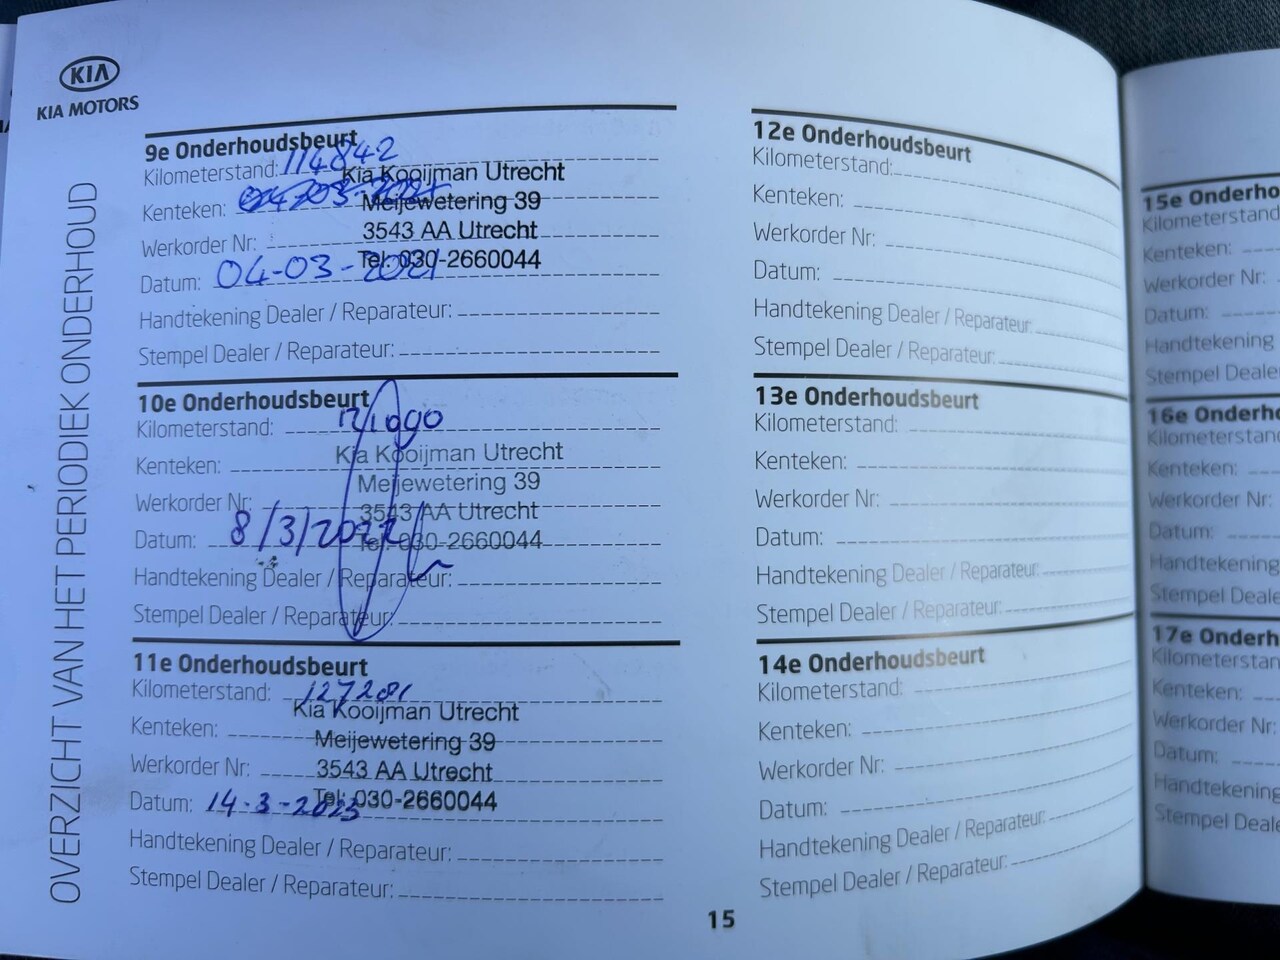 KIA
KIA MOTORS
OVERZICHT VAN HET PERIODIEK ONDERHOUD
9e Onderhoudsbeurt
Kilometerstand: 114842
Kia Kooijman Utrecht
Kenteken: 04-03-2021
Meijewetering 39
Werkorder Nr:
3543 AA Utrecht
Datum: 04-03-2021
Tel: 030-2660044
Handtekening Dealer / Reparateur:
Stempel Dealer / Reparateur:
10e Onderhoudsbeurt
Kilometerstand:
Kia Kooijman Utrecht
Kenteken:
Meijewetering 39
Werkorder Nr:
3543 AA Utrecht
Datum: 8/3/2022
Tel: 030-2660044
Handtekening Dealer / Reparateur:
Stempel Dealer / Reparateur:
11e Onderhoudsbeurt
Kilometerstand: 127281
Kia Kooijman Utrecht
Kenteken:
Meijewetering 39
Werkorder Nr:
3543 AA Utrecht
Datum: 14-3-2023
Tel: 030-2660044
Handtekening Dealer / Reparateur:
Stempel Dealer / Reparateur:
12e Onderhoudsbeurt
Kilometerstand:
Kenteken:
Werkorder Nr:
Datum:
Handtekening Dealer / Reparateur:
Stempel Dealer / Reparateur:
13e Onderhoudsbeurt
Kilometerstand:
Kenteken:
Werkorder Nr:
Datum:
Handtekening Dealer / Reparateur:
Stempel Dealer / Reparateur:
14e Onderhoudsbeurt
Kilometerstand:
Kenteken:
Werkorder Nr:
Datum:
Handtekening Dealer / Reparateur:
Stempel Dealer / Reparateur:
15
15e Onderho
Kilometerstand
Kenteken:
Werkorder Nr:
Datum:
Handtekening
Stempel Dealer
16e Onderho
Kilometerstand
Kenteken:
Werkorder Nr:
Datum:
Handtekening
Stempel Deale
17e Onderh
Kilometerstan
Kenteken:
Werkorder Nr:
Datum:
Handtekening
Stempel Deale